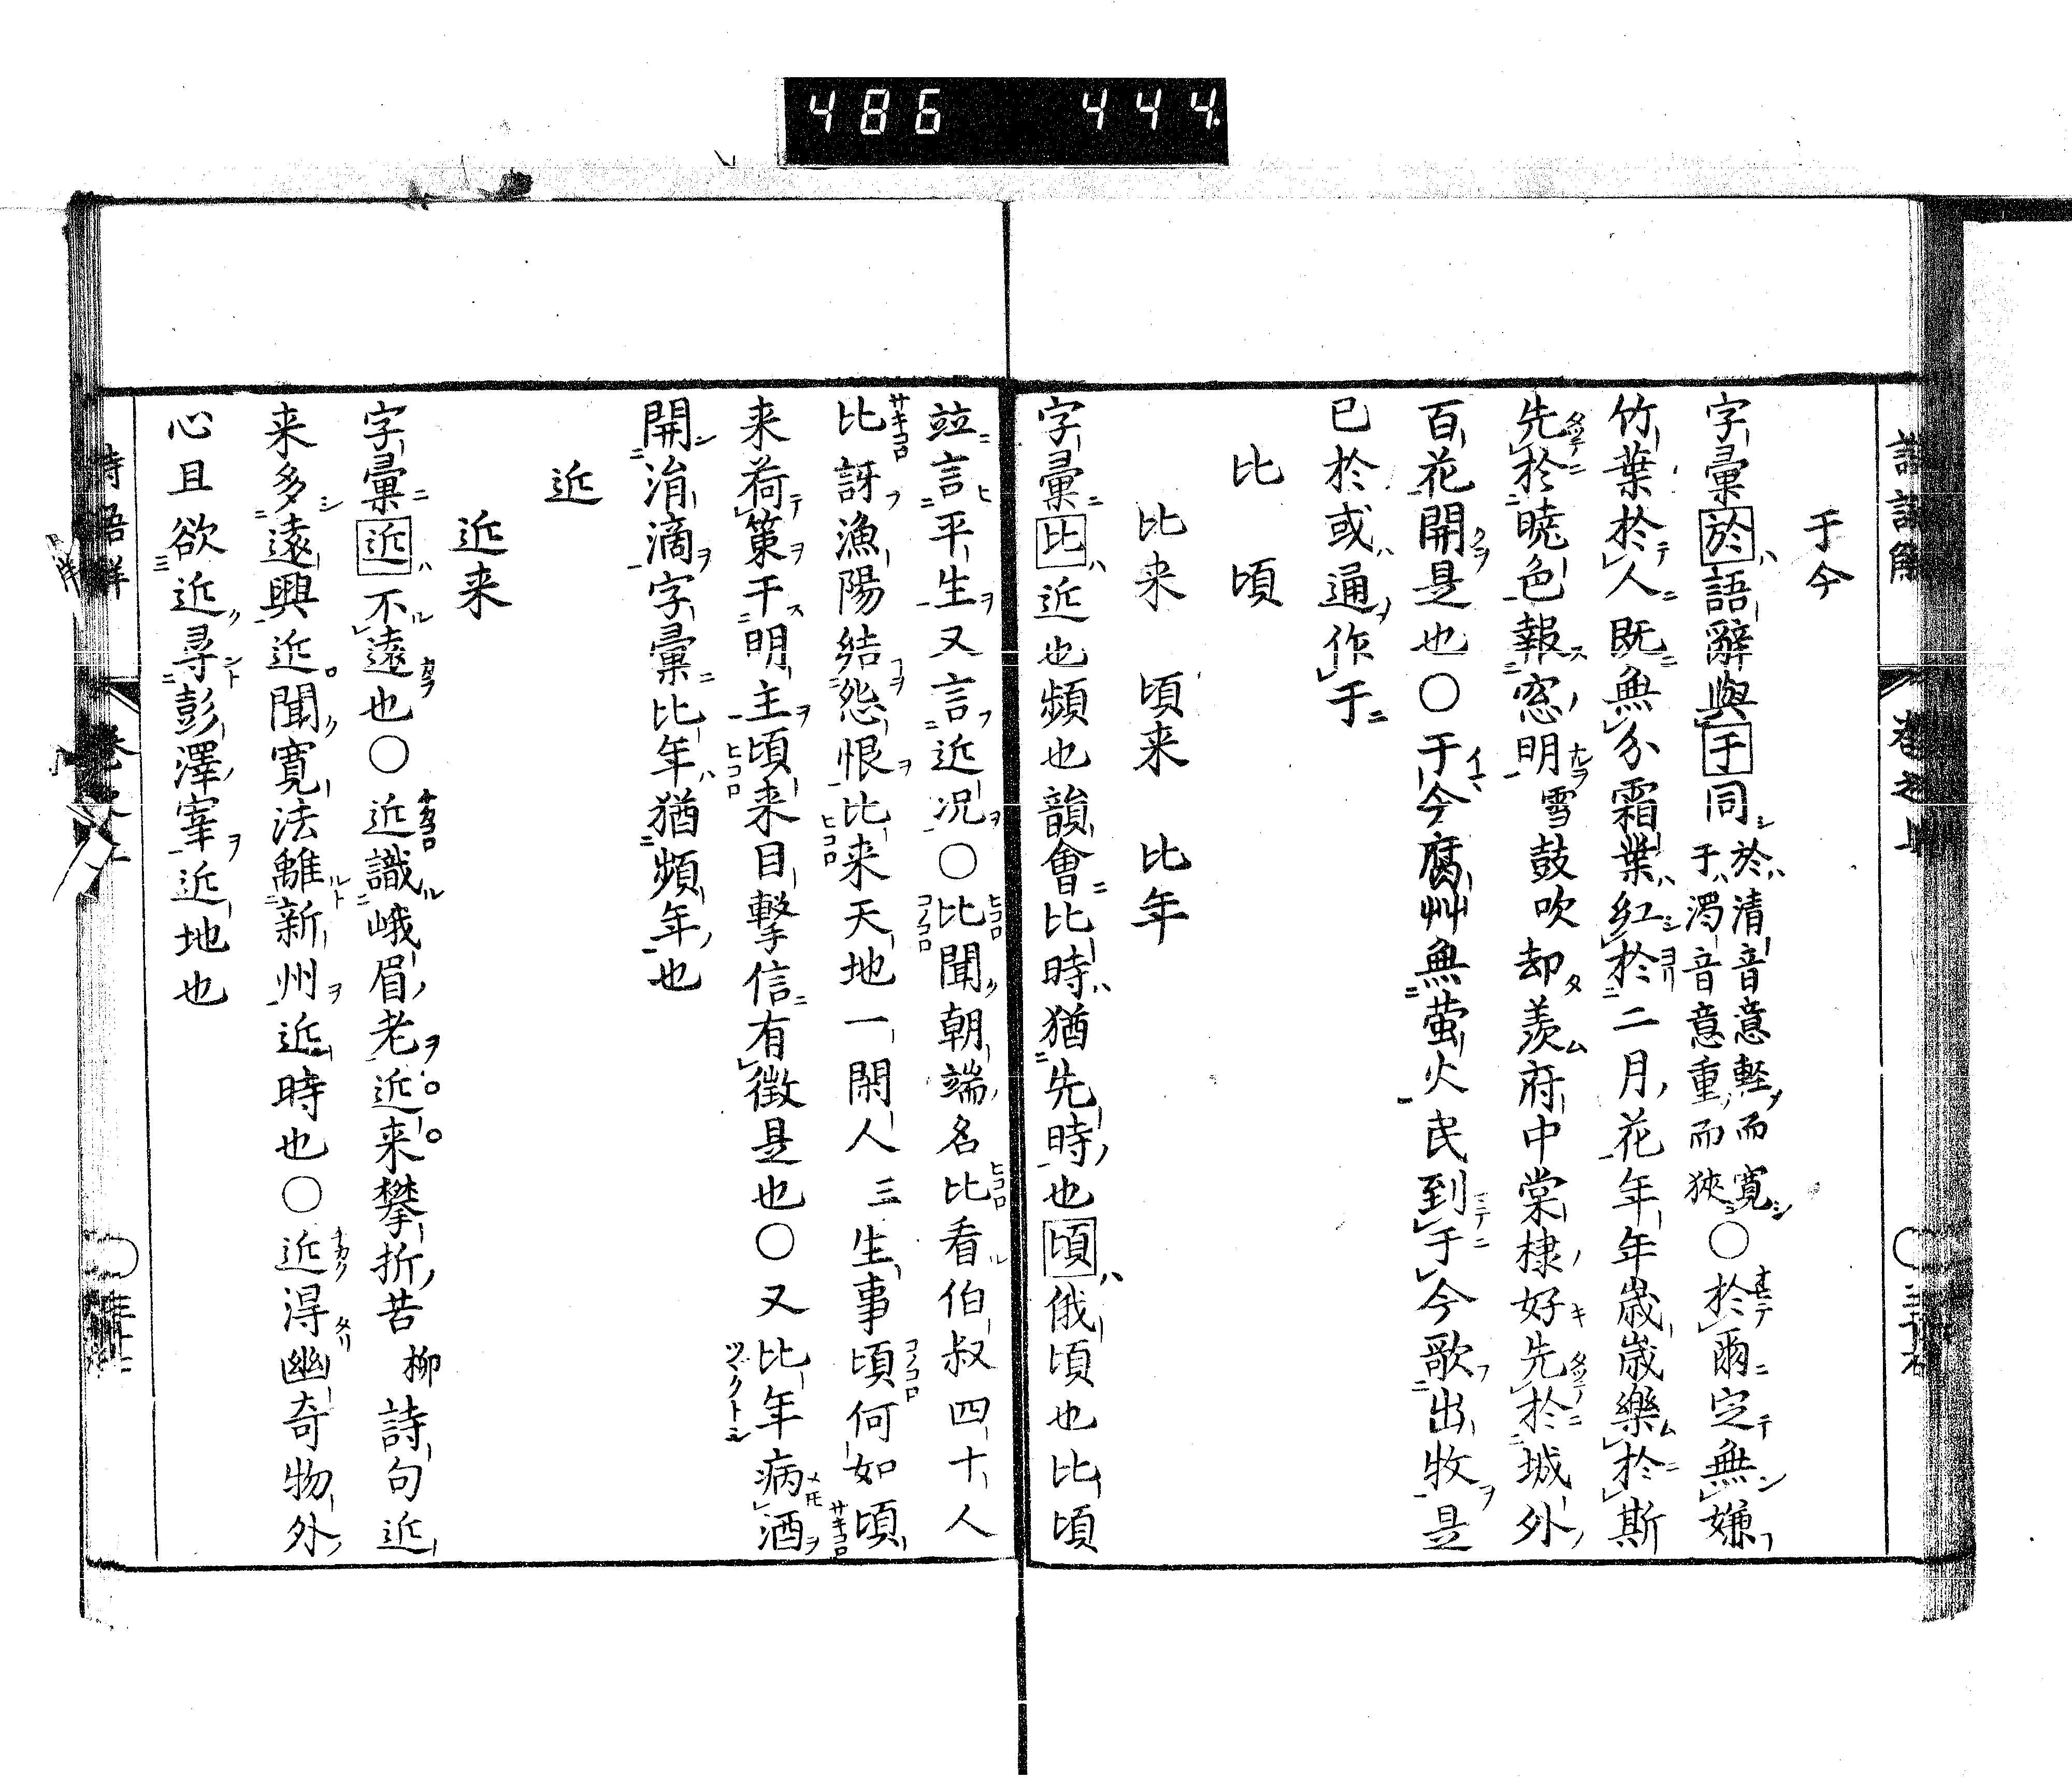 486 444.
于今
字彙於語辭與于同於清音意輕而寬
于濁音意重而狹〇於爾定無嫌
竹葉於人既無分霜葉紅於二月花年年歳歳樂於斯
先於曉色報窓明雪鼓吹却羨府中棠棣好先於城外
百花開是也〇于今腐艸無螢火民到于今歌出牧是
已於或通作于
比 頃
比来 頃来 比年
字彙比近也頻也韻會比時猶先時也頃俄頃也比頃
竝言平生又言近况〇比聞朝端名比看伯叔四十人
比訝漁陽結怨恨比来天地一閑人三生事頃何如頃
来荷策干明主頃来目擊信有徴是也〇又比年病酒
開涓滴字彙比年猶頻年也
近
近来
字彙近不遠也〇近識峨眉老近来攀折苦柳詩句近
来多遠興近聞寛法離新州近時也〇近得幽奇物外
心且欲近尋彭澤宰近地也